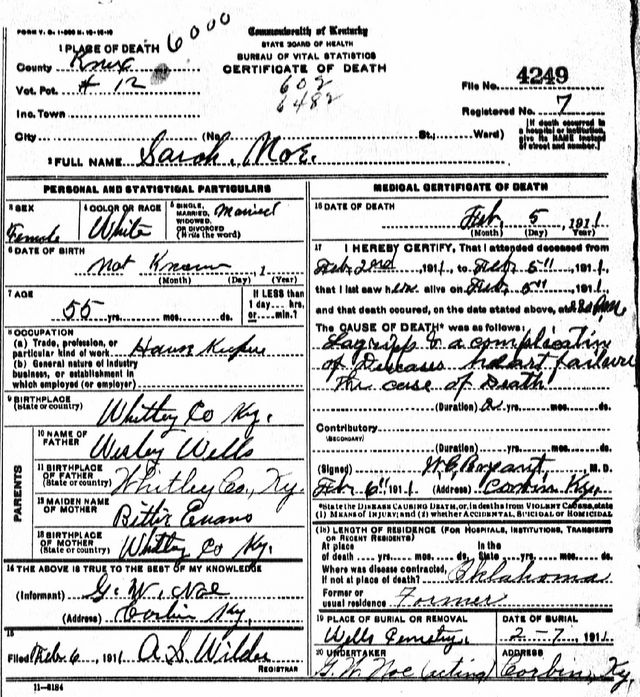 FORM V. S. 1-
6000
Commonwealth of Kentucky
STATE BOARD OF HEALTH
BUREAU OF VITAL STATISTICS
CERTIFICATE OF DEATH
602
6482
1 PLACE OF DEATH
County Knox
Vot. Pct. # 12
Inc. Town
City (No. St.; Ward)
File No. 4249
Registered No. 7
[If death occurred in a hospital or institution, give its NAME instead of street and number.]
2 FULL NAME Sarah. Noe.
PERSONAL AND STATISTICAL PARTICULARS
3 SEX Female
4 COLOR OR RACE White
5 SINGLE, MARRIED, WIDOWED, OR DIVORCED (Write the word) Married
6 DATE OF BIRTH
Not Known, 1
(Month) (Day) (Year)
7 AGE
55 yrs. mos. ds.
If LESS than 1 day hrs. or min.?
8 OCCUPATION
(a) Trade, profession, or particular kind of work House Keeper
(b) General nature of industry business, or establishment in which employed (or employer)
9 BIRTHPLACE (State or country) Whitley Co Ky.
PARENTS
10 NAME OF FATHER Wesley Wells
11 BIRTHPLACE OF FATHER (State or country) Whitley Co, Ky.
12 MAIDEN NAME OF MOTHER Bettie Evans
13 BIRTHPLACE OF MOTHER (State or country) Whitley Co Ky.
14 THE ABOVE IS TRUE TO THE BEST OF MY KNOWLEDGE
(Informant) G. W. Noe
(Address) Corbin Ky.
15
Filed Feb 6, 1911 A. S. Wilder
REGISTRAR
11-6184
MEDICAL CERTIFICATE OF DEATH
16 DATE OF DEATH
Feb 5, 1911
(Month) (Day) (Year)
17 I HEREBY CERTIFY, That I attended deceased from
Feb 2nd, 1911, to Feb 5", 1911,
that I last saw her alive on Feb 5", 1911,
and that death occured, on the date stated above, at m.
The CAUSE OF DEATH* was as follows:
Lagripp & a complication
of Diseases heart failure
the case of Death
(Duration) 2 yrs. mos. ds.
Contributory
(SECONDARY)
(Duration) yrs. mos. ds.
(Signed) W. C. Bryant, M. D.
Feb 6", 1911 (Address) Corbin Ky.
*State the DISEASE CAUSING DEATH, or, in deaths from VIOLENT CAUSES, state
(1) MEANS OF INJURY; and (2) whether ACCIDENTAL, SUICIDAL or HOMICIDAL
18 LENGTH OF RESIDENCE (FOR HOSPITALS, INSTITUTIONS, TRANSIENTS OR RECENT RESIDENTS)
At place of death yrs. mos. ds. In the State yrs. mos. ds.
Where was disease contracted, if not at place of death? Oklahoma
Former or usual residence Former
19 PLACE OF BURIAL OR REMOVAL
Wells Cemetry,
DATE OF BURIAL
2-7, 1911
20 UNDERTAKER
G. W. Noe (acting)
ADDRESS
Corbin, Ky,